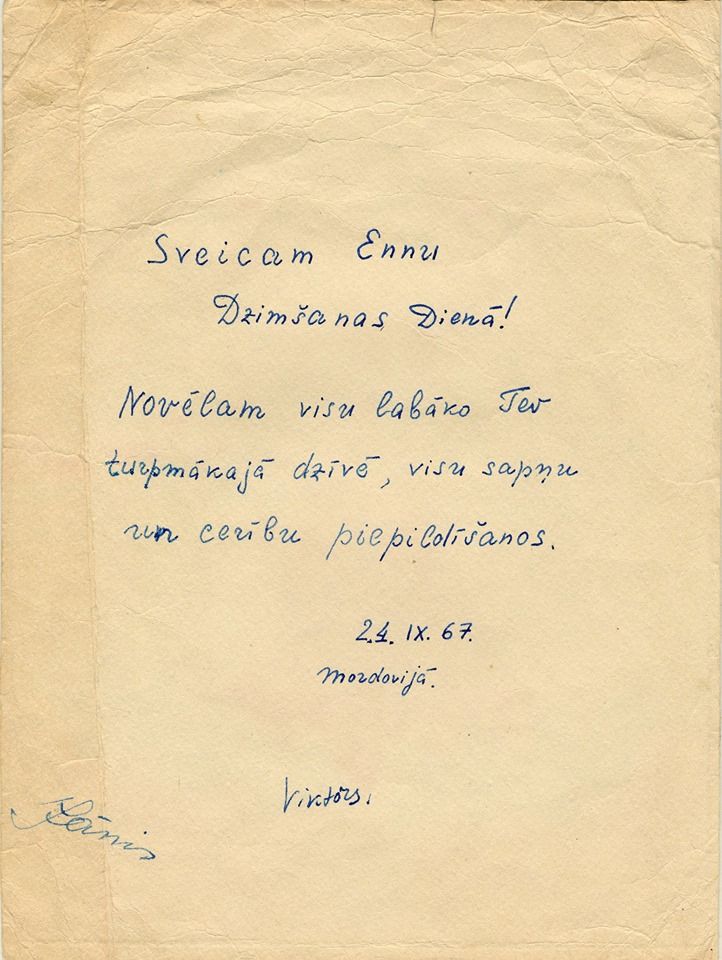 Sveicam Ennu
Dzimšanas Dienā!
Novēlam visu labāko Tev
turpmākajā dzīvē, visu sapņu
un cerību piepildīšanos.
24. IX. 67.
Mordovijā.
Viktors.